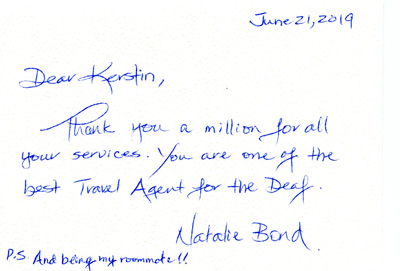 June 21, 2019
Dear Kerstin,
Thank you a million for all
your services. You are one of the
best Travel Agent for the Deaf.
Natalie Bond
P.S. And being my roommate!!